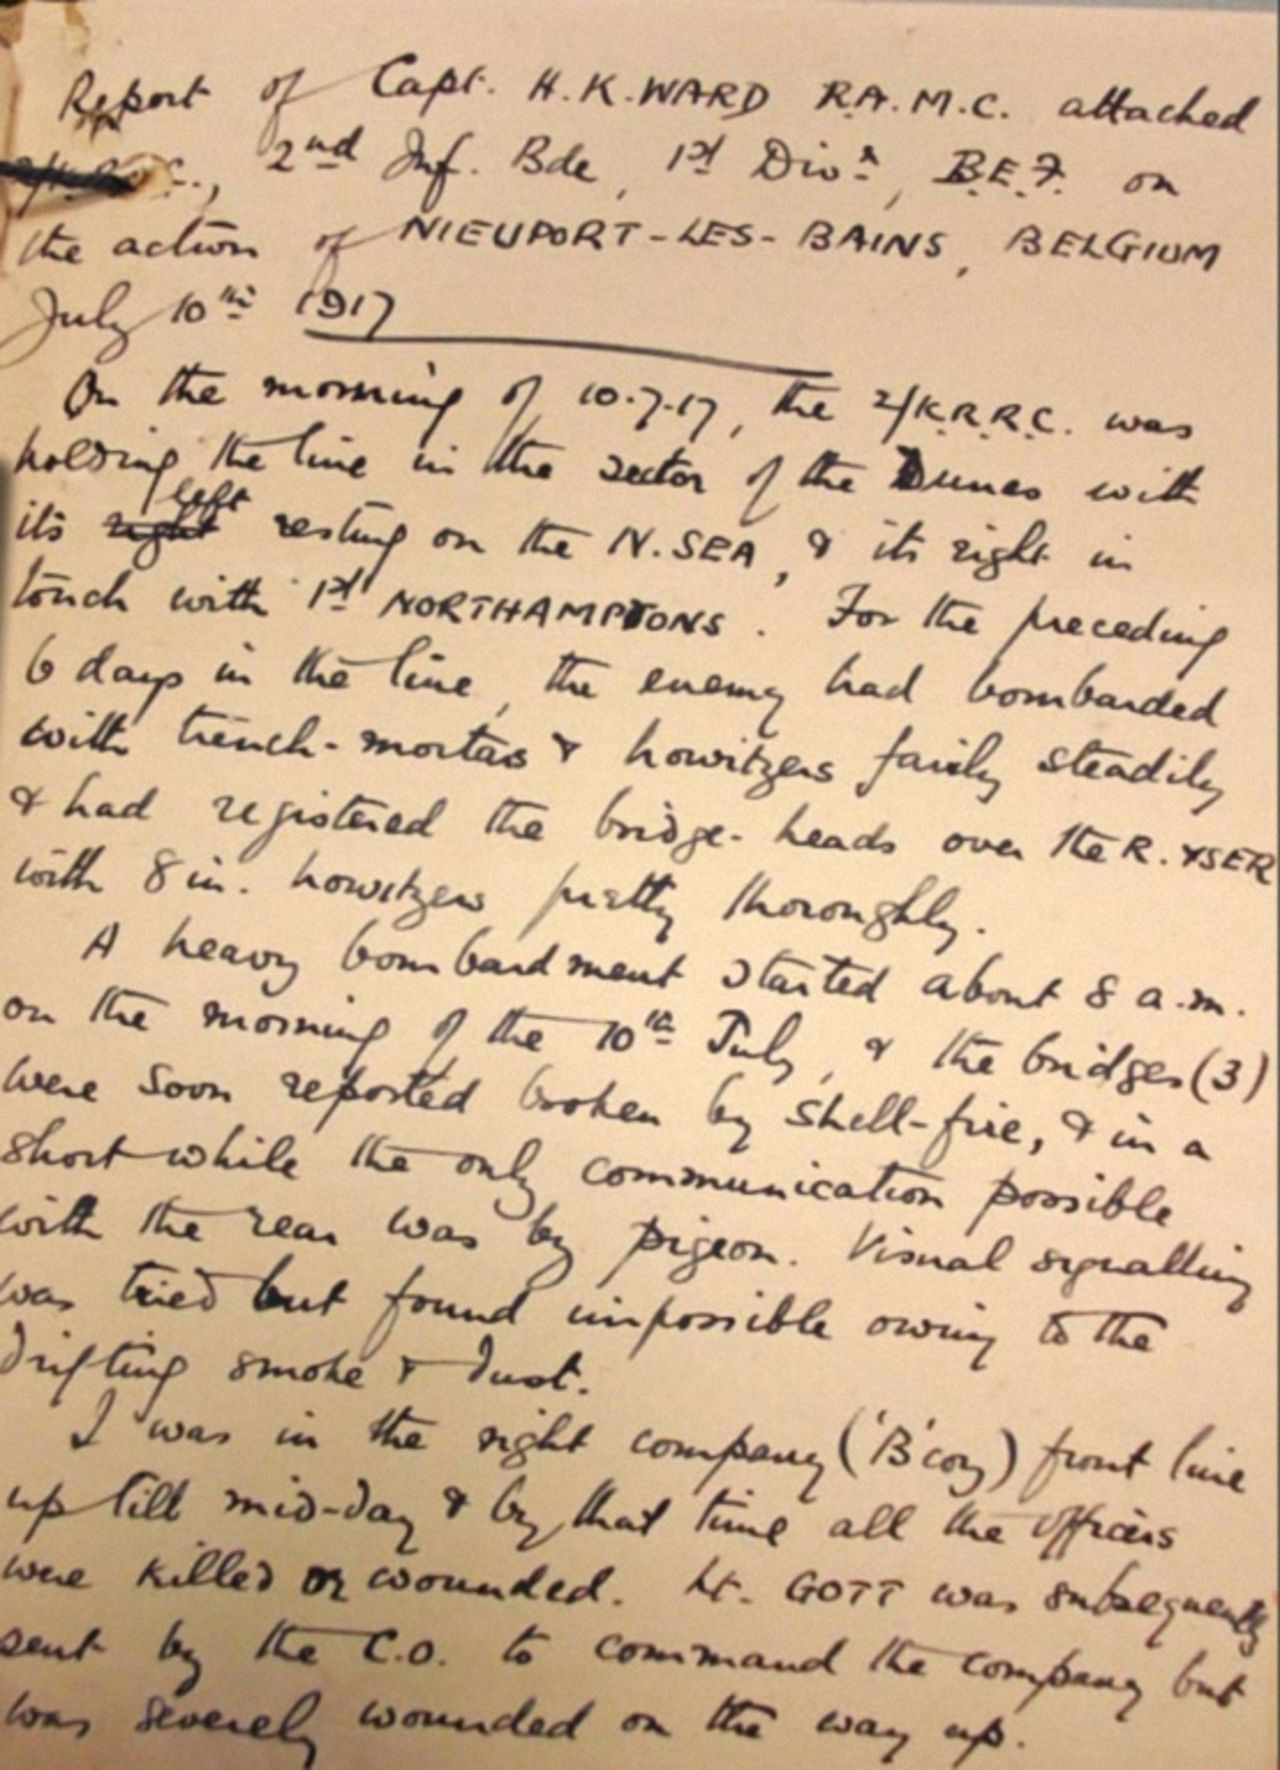 Report of Capt. H.K. WARD R.A.M.C. attached
2nd Inf. Bde, 1st Divn, B.E.F. on
the action of NIEUPORT-LES-BAINS, BELGIUM
July 10th 1917
On the morning of 10.7.17, the 2/K.R.R.C. was
holding the line in the sector of the Dunes with
its right left resting on the N.SEA, & its right in
touch with 1st NORTHAMPTONS. For the preceding
6 days in the line, the enemy had bombarded
with trench-mortars & howitzers fairly steadily
& had registered the bridge-heads over the R. YSER
with 8 in. howitzers pretty thoroughly.
A heavy bombardment started about 8 a.m.
on the morning of the 10th July, & the bridges (3)
were soon reported broken by shell-fire, & in a
short while the only communication possible
with the rear was by pigeon. Visual signalling
was tried but found impossible owing to the
drifting smoke & dust.
I was in the right company ('B' coy) front line
up till mid-day & by that time all the officers
were killed or wounded. Lt. GOTT was subsequently
sent by the C.O. to command the company but
was severely wounded on the way up.